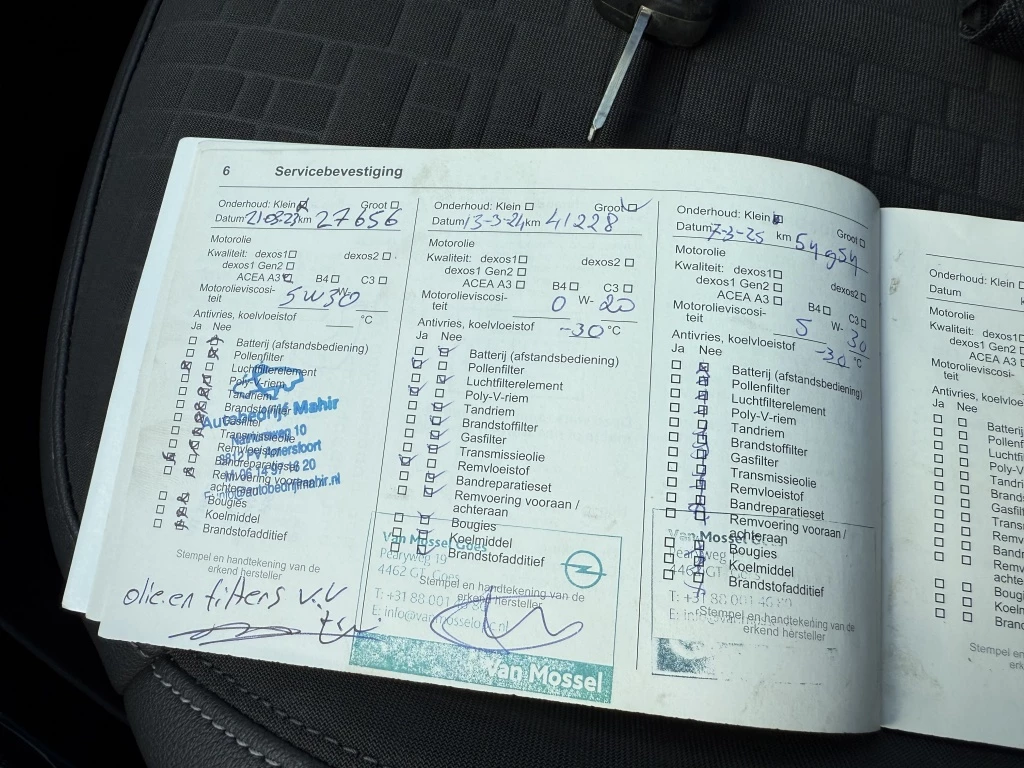 6 Servicebevestiging
Onderhoud: Klein Groot
Datum 21-03-23 km 27656
Motorolie
Kwaliteit: dexos1 dexos2
dexos1 Gen2
ACEA A3 B4 C3
Motorolieviscosi- 5W30
teit
Antivries, koelvloeistof °C
Ja Nee
Batterij (afstandsbediening)
Pollenfilter
Luchtfilterelement
Poly-V-riem
Tandriem
Brandstoffilter
Gasfilter
Transmissieolie
Remvloeistof
Bandreparatieset
Remvoering vooraan /
achteraan
Bougies
Koelmiddel
Brandstofadditief
Autobedrijf Mahir
10
3812 PV Amersfoort
M: 06 14 97 16 20
E: info@autobedrijfmahir.nl
Stempel en handtekening van de
erkend hersteller
olie.en filters v.v
Onderhoud: Klein Groot
Datum 13-3-24 km 41228
Motorolie
Kwaliteit: dexos1 dexos2
dexos1 Gen2
ACEA A3 B4 C3
Motorolieviscosi- 0 W- 20
teit
Antivries, koelvloeistof -30 °C
Ja Nee
Batterij (afstandsbediening)
Pollenfilter
Luchtfilterelement
Poly-V-riem
Tandriem
Brandstoffilter
Gasfilter
Transmissieolie
Remvloeistof
Bandreparatieset
Remvoering vooraan /
achteraan
Bougies
Koelmiddel
Brandstofadditief
Van Mossel Goes
Pearyweg 19
4462 GT Goes
Stempel en handtekening van de
erkend hersteller
T: +31 88 001
Van Mossel
Onderhoud: Klein Groot
Datum 7-3-25 km 54954
Motorolie
Kwaliteit: dexos1 dexos2
dexos1 Gen2
ACEA A3 B4 C3
Motorolieviscosi- 5 W- 30
teit
Antivries, koelvloeistof -30 °C
Ja Nee
Batterij (afstandsbediening)
Pollenfilter
Luchtfilterelement
Poly-V-riem
Tandriem
Brandstoffilter
Gasfilter
Transmissieolie
Remvloeistof
Bandreparatieset
Remvoering vooraan /
achteraan
Bougies
Koelmiddel
Brandstofadditief
Van Mossel
4462 GT
T: +31 88 001
Stempel en handtekening van de
erkend hersteller
Onderhoud: Klein
Datum
Motorolie
Kwaliteit: dexos1
dexos1 Gen2
ACEA A3
Motorolieviscosi-
teit
Antivries, koelvloe
Ja Nee
Batterij
Pollenf
Luchtfi
Poly-V
Tandri
Brand
Gasfil
Trans
Remv
Band
Remv
achte
Boug
Koeln
Branc
Stempel en